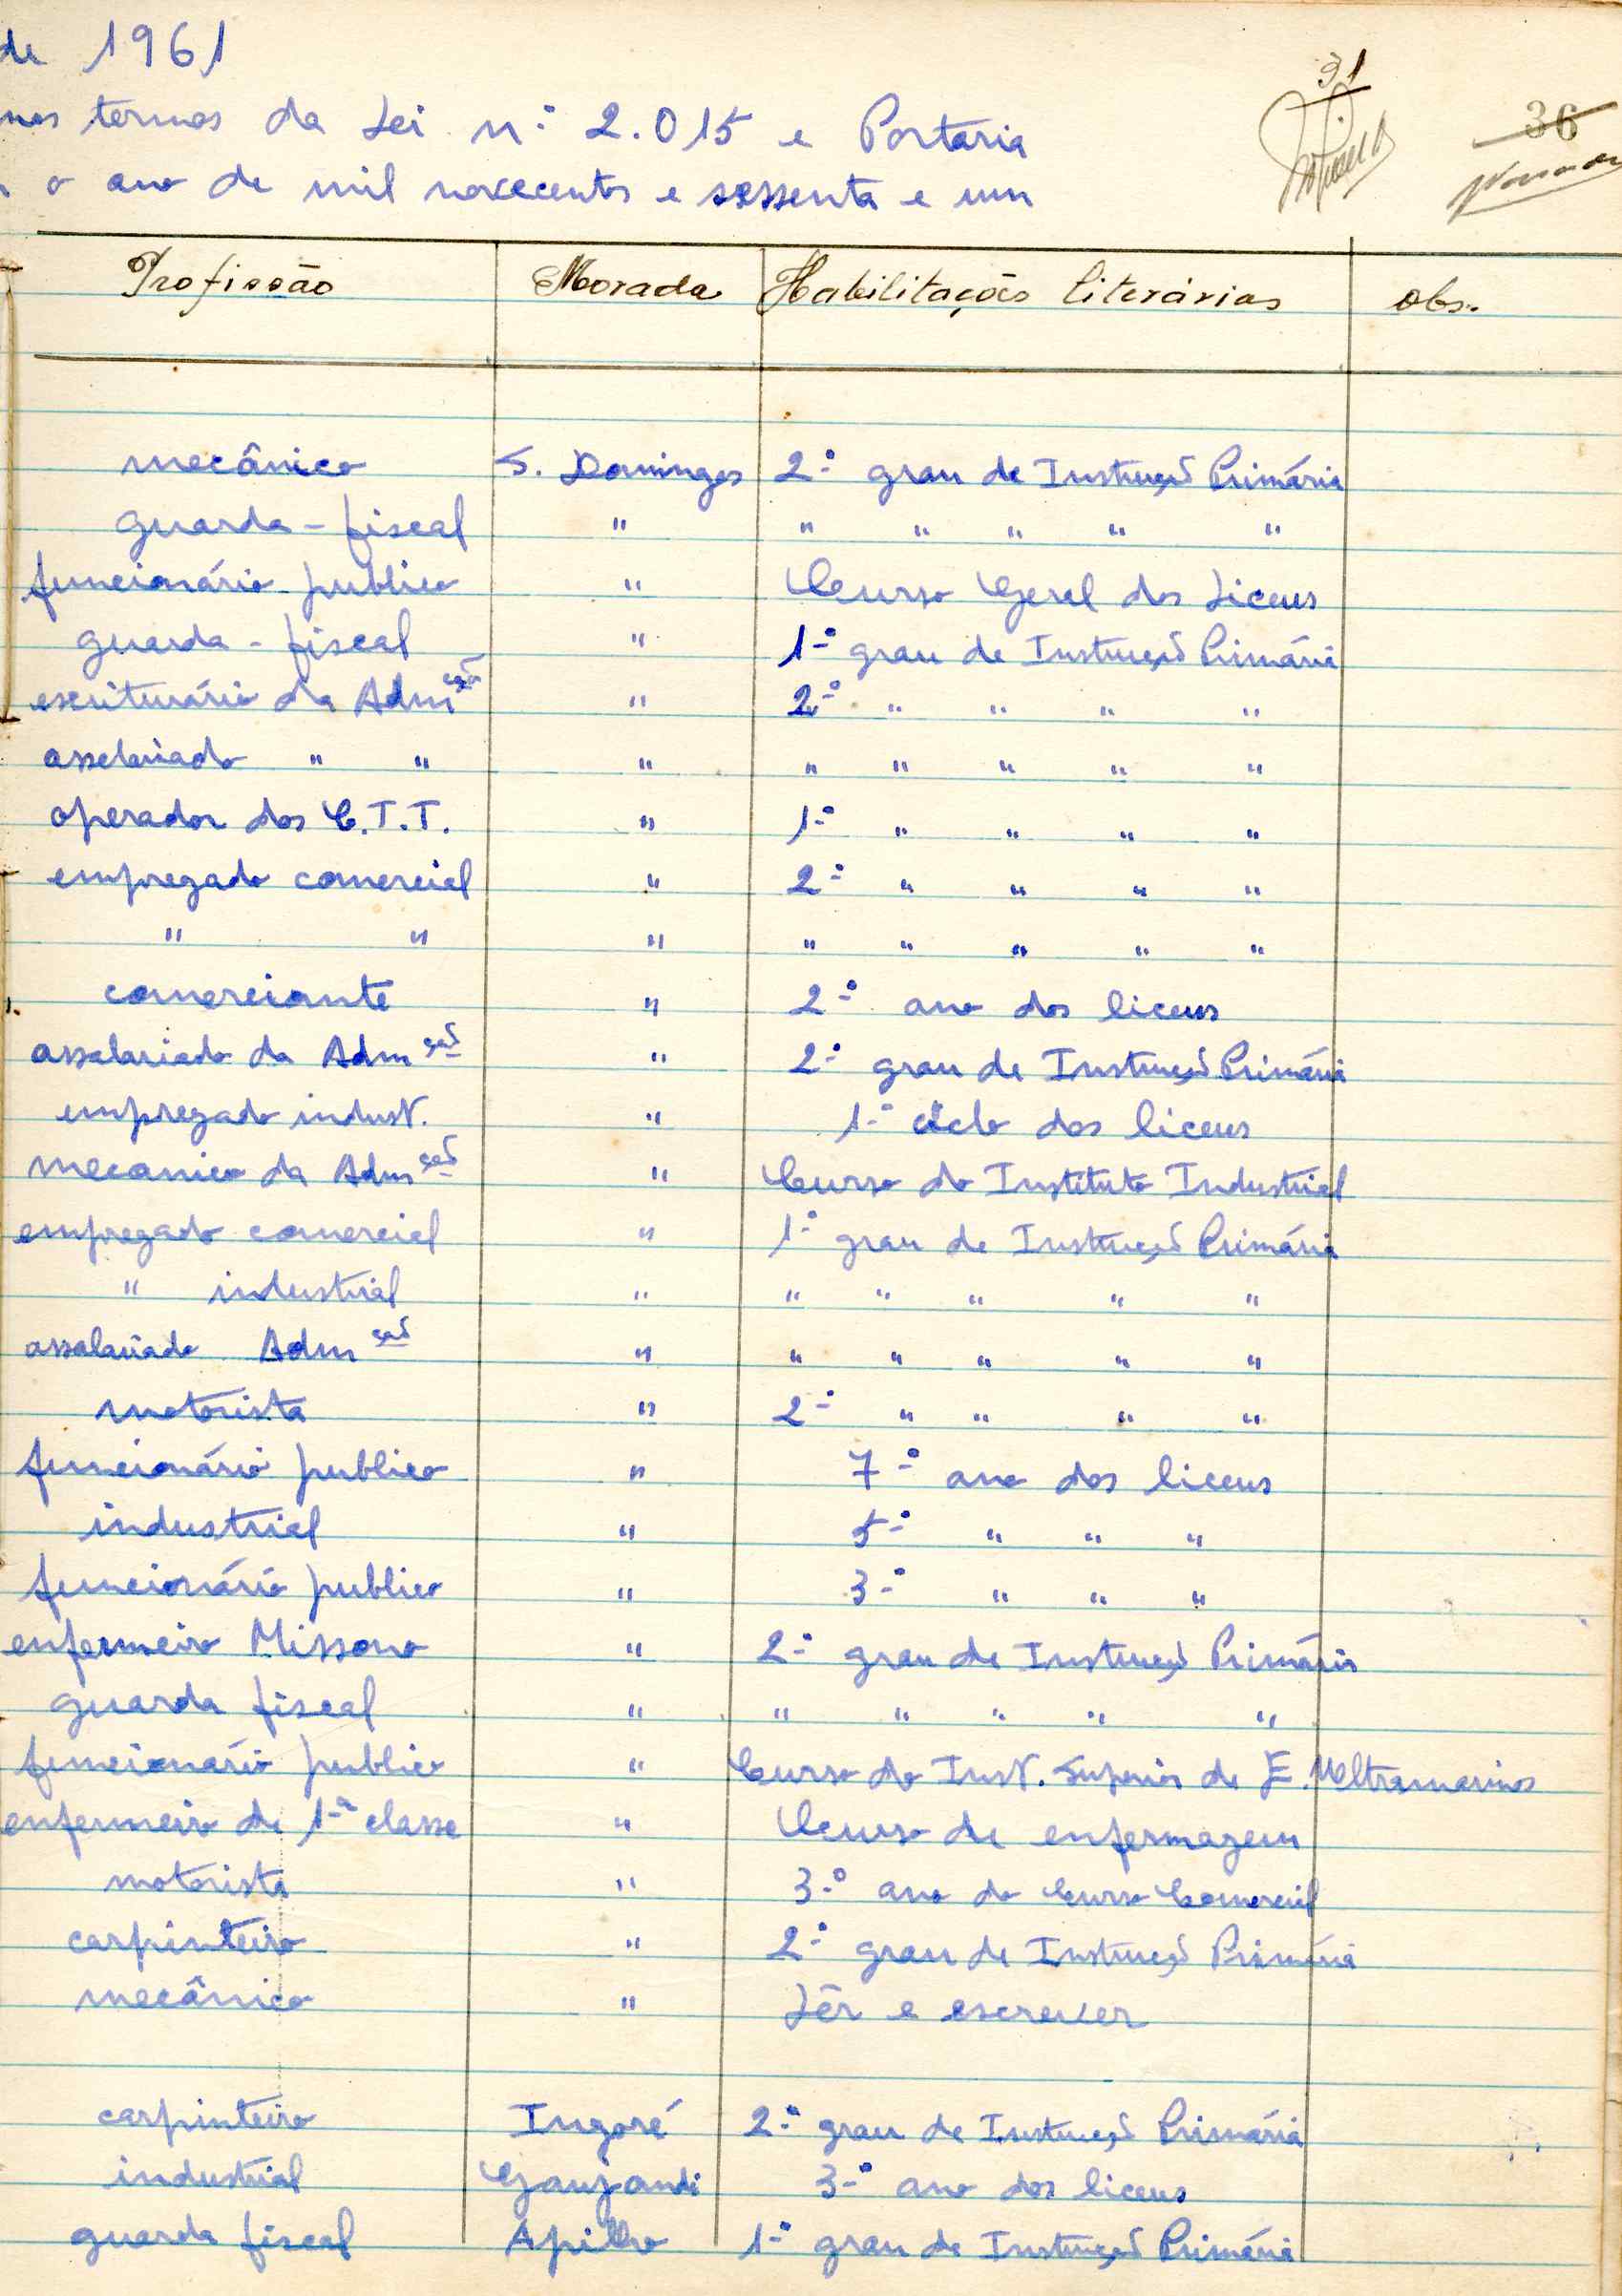 de 1961
31
36
nos termos da Lei n.º 2.015 e Portaria
o ano de mil novecentos e sessenta e um
Profissão Morada Habilitações literárias Obs.
mecânico S. Domingos 2.º grau de Instrução Primária
guarda-fiscal " " " " " "
funcionário publico " Curso Geral dos Liceus
guarda-fiscal " 1.º grau de Instrução Primária
escriturário da Admção " 2.º " " " "
asselariado " " " " " " " "
operador dos C.T.T. " 1.º " " " "
empregado comercial " 2.º " " " "
" " " " " " " "
comerciante " 2.º ano dos liceus
assalariado da Admção " 2.º grau de Instrução Primária
empregado indust. " 1.º ciclo dos liceus
mecanico da Admção " Curso do Instituto Industrial
empregado comercial " 1.º grau de Instrução Primária
" industrial " " " " " "
assalariado Admção " " " " " "
motorista " 2.º " " " "
funcionário publico " 7.º ano dos liceus
industrial " 5.º " " "
funcionário publico " 3.º " " "
enfermeiro Missono " 2.º grau de Instrução Primária
guarda fiscal " " " " " "
funcionário publico " Curso do Inst. Superior de E. Ultramarinos
enfermeiro de 1.ª classe " Curso de enfermagem
motorista " 3.º ano do Curso Comercial
carpinteiro " 2.º grau de Instrução Primária
mecânico " Lêr e escrever
carpinteiro Ingoré 2.º grau de Instrução Primária
industrial 3.º ano dos liceus
guarda fiscal Apilho 1.º grau de Instrução Primária